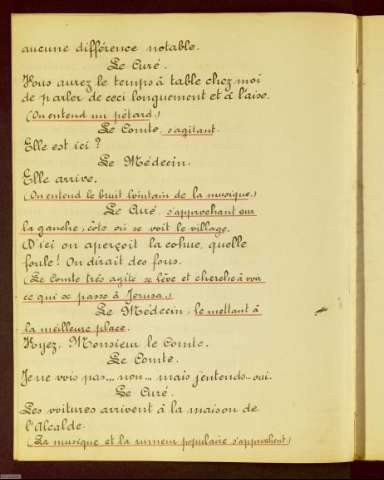 aucune différence notable.
Le Curé.
Vous aurez le temps à table chez moi
de parler de ceci longuement et à l'aise.
(On entend un pétard.)
Le Comte, s'agitant.
Elle est ici ?
Le Médecin.
Elle arrive.
(On entend le bruit lointain de la musique.)
Le Curé s'approchant sur
la gauche, côté où se voit le village.
D'ici on aperçoit la cohue, quelle
foule ! On dirait des fous.
(Le Comte très agité se lève et cherche à voir
ce qui se passe à Jerusa.)
Le Médecin, le mettant à
la meilleure place.
Voyez, Monsieur le Comte.
Le Comte.
Je ne vois pas... non... mais j'entends.. oui.
Le Curé.
Les voitures arrivent à la maison de
l'Alcalde.
(La musique et la rumeur populaire s'approchent.)